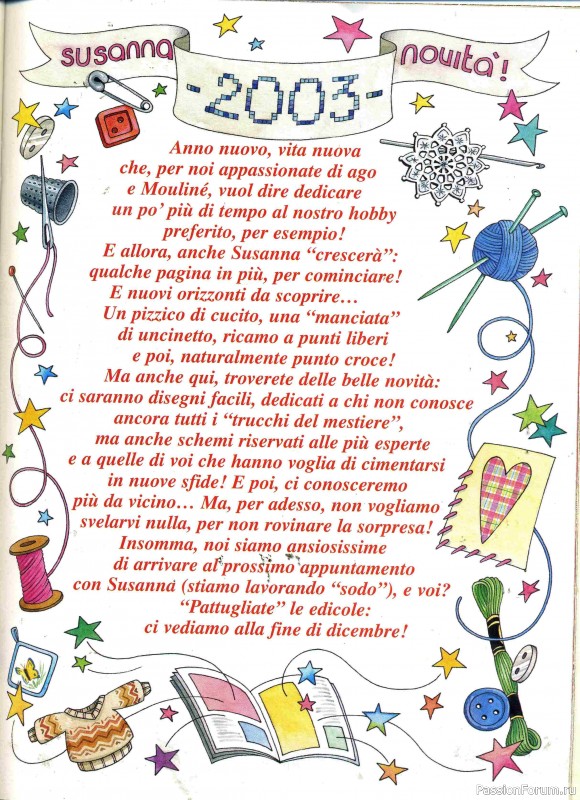 susanna
-2003-
novità!
Anno nuovo, vita nuova
che, per noi appassionate di ago
e Mouliné, vuol dire dedicare
un po’ più di tempo al nostro hobby
preferito, per esempio!
E allora, anche Susanna “crescerà”:
qualche pagina in più, per cominciare!
E nuovi orizzonti da scoprire…
Un pizzico di cucito, una “manciata”
di uncinetto, ricamo a punti liberi
e poi, naturalmente punto croce!
Ma anche qui, troverete delle belle novità:
ci saranno disegni facili, dedicati a chi non conosce
ancora tutti i “trucchi del mestiere”,
ma anche schemi riservati alle più esperte
e a quelle di voi che hanno voglia di cimentarsi
in nuove sfide! E poi, ci conosceremo
più da vicino… Ma, per adesso, non vogliamo
svelarvi nulla, per non rovinare la sorpresa!
Insomma, noi siamo ansiosissime
di arrivare al prossimo appuntamento
con Susanna (stiamo lavorando “sodo”), e voi?
“Pattugliate” le edicole:
ci vediamo alla fine di dicembre!
PassionForum.ru